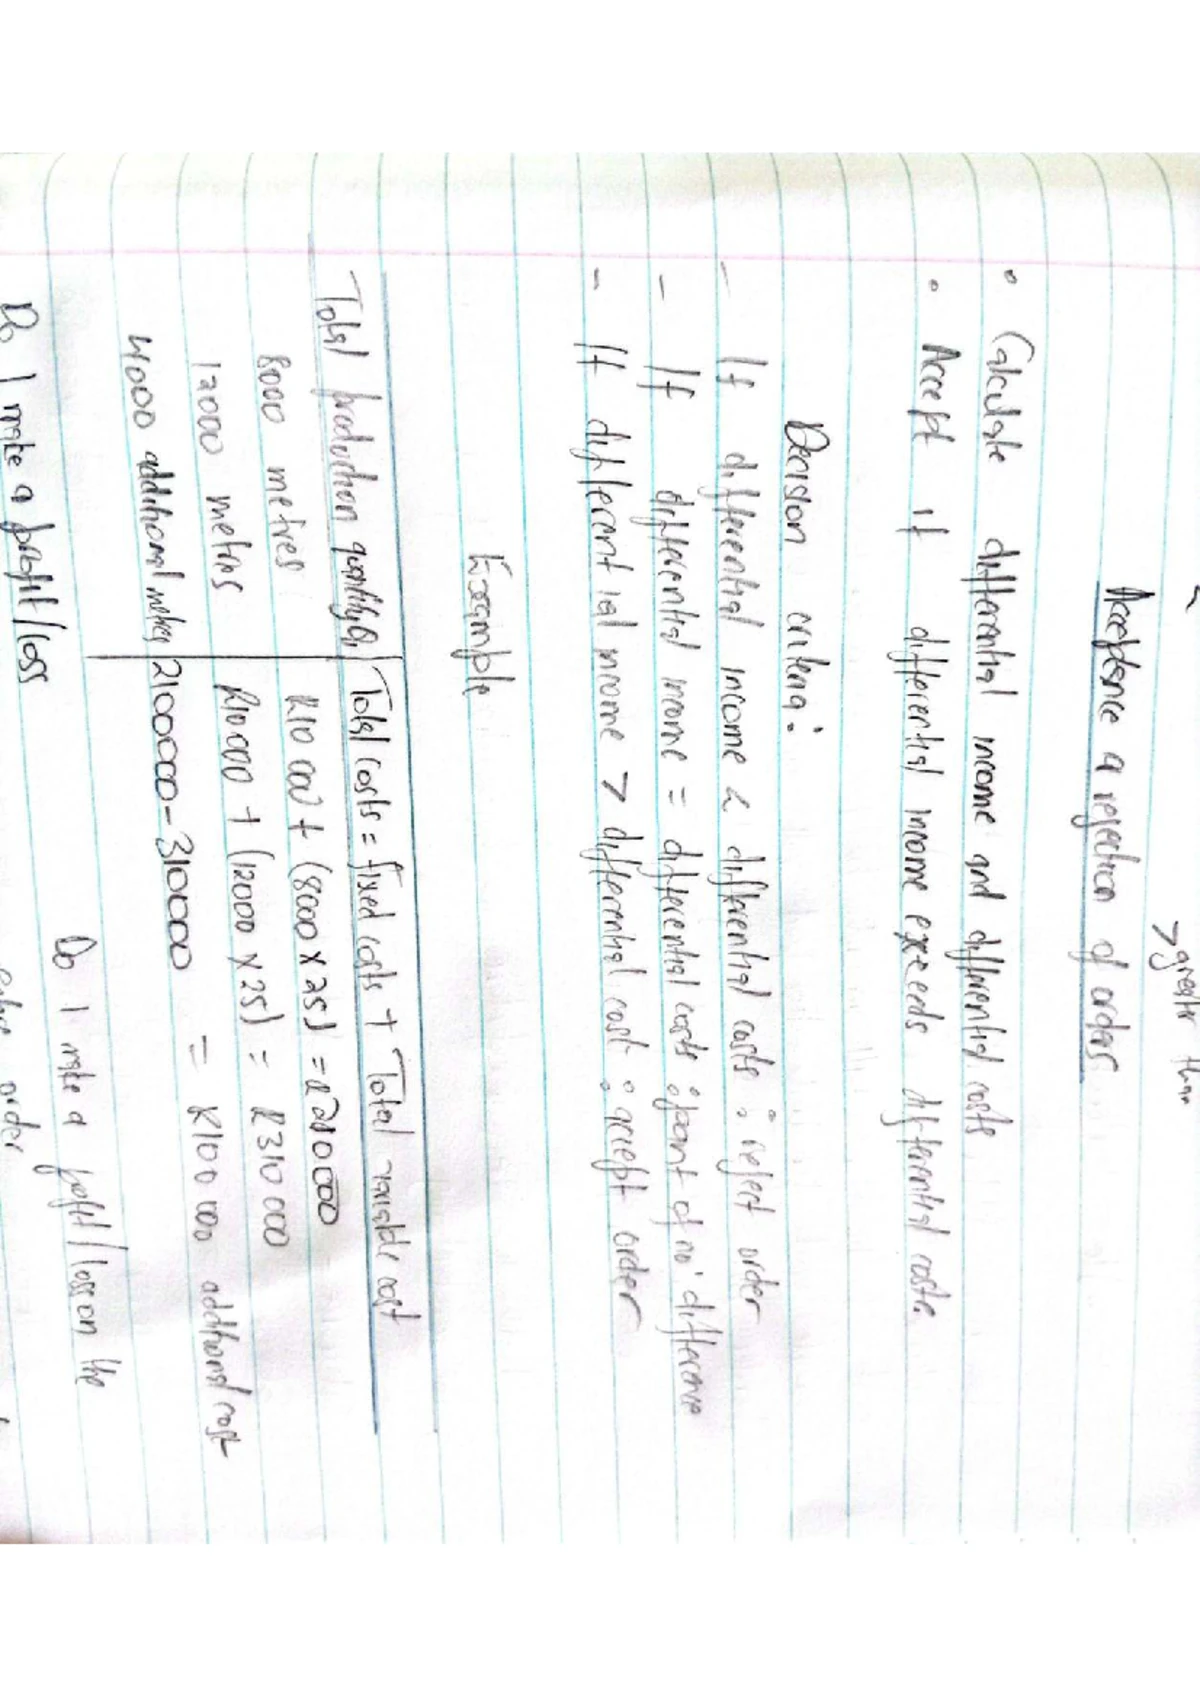 > greater than
Acceptance a rejection of orders
• Calculate differential income and differential costs
• Accept if differential income exceeds differential costs.
Decision criteria:
- If differential income < differential costs ∴ reject order
- If differential income = differential costs ∴ point of no difference
- If differential income > differential cost ∴ accept order
Example
Total production quantity, Q, | Total costs = fixed costs + Total variable cost
8000 metres R10 000 + (8000 x 25) = R210000
12000 metres R10 000 + (12000 x 25) = R310 000
4000 additional metres 210000-310000 = R100 000 additional cost
Do I make a profit/loss on the
Do I make a profit/loss order